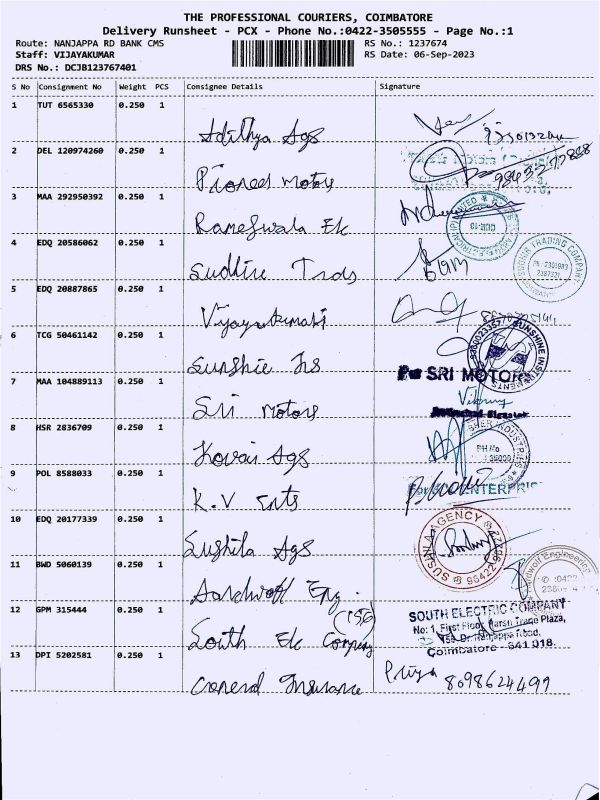 THE PROFESSIONAL COURIERS, COIMBATORE
Delivery Runsheet - PCX - Phone No.:0422-3505555 - Page No.:1
Route: NANJAPPA RD BANK CMS RS No.: 1237674
Staff: VIJAYAKUMAR RS Date: 06-Sep-2023
DRS No.: DCJB123767401
S No Consignment No Weight PCS Consignee Details Signature
1 TUT 6565330 0.250 1
Adithya Ags
2 DEL 120974260 0.250 1
Pioneer Motors
3 MAA 292950392 0.250 1
Rameswala Ek
4 EDQ 20586062 0.250 1
SUDHIR TRADING COMPANY
Sudhir Trds
5 EDQ 20887865 0.250 1
Vijayakumari
6 TCG 50461142 0.250 1
SUNSHINE INSTRUMENTS
Sunshie Ins
7 MAA 104889113 0.250 1
For SRI MOTORS
Sri Motors
8 HSR 2836709 0.250 1
PH No
Kovai Ags
9 POL 8588033 0.250 1
ENTERPRIS
K.V Ents
10 EDQ 20177339 0.250 1
SUSHILA AGENCY
Sushila Ags
11 BWD 5060139 0.250 1
Aardwolf Engineering
Aardwolf Eng.
12 GPM 315444 0.250 1
(156)
SOUTH ELECTRIC COMPANY
No: 1, First Floor, Harsh Trade Plaza,
158, Dr. Nanjappa Road,
Coimbatore - 641 018.
South Ek Company
13 DPI 5202581 0.250 1
Priya 8098624499
General Insurance